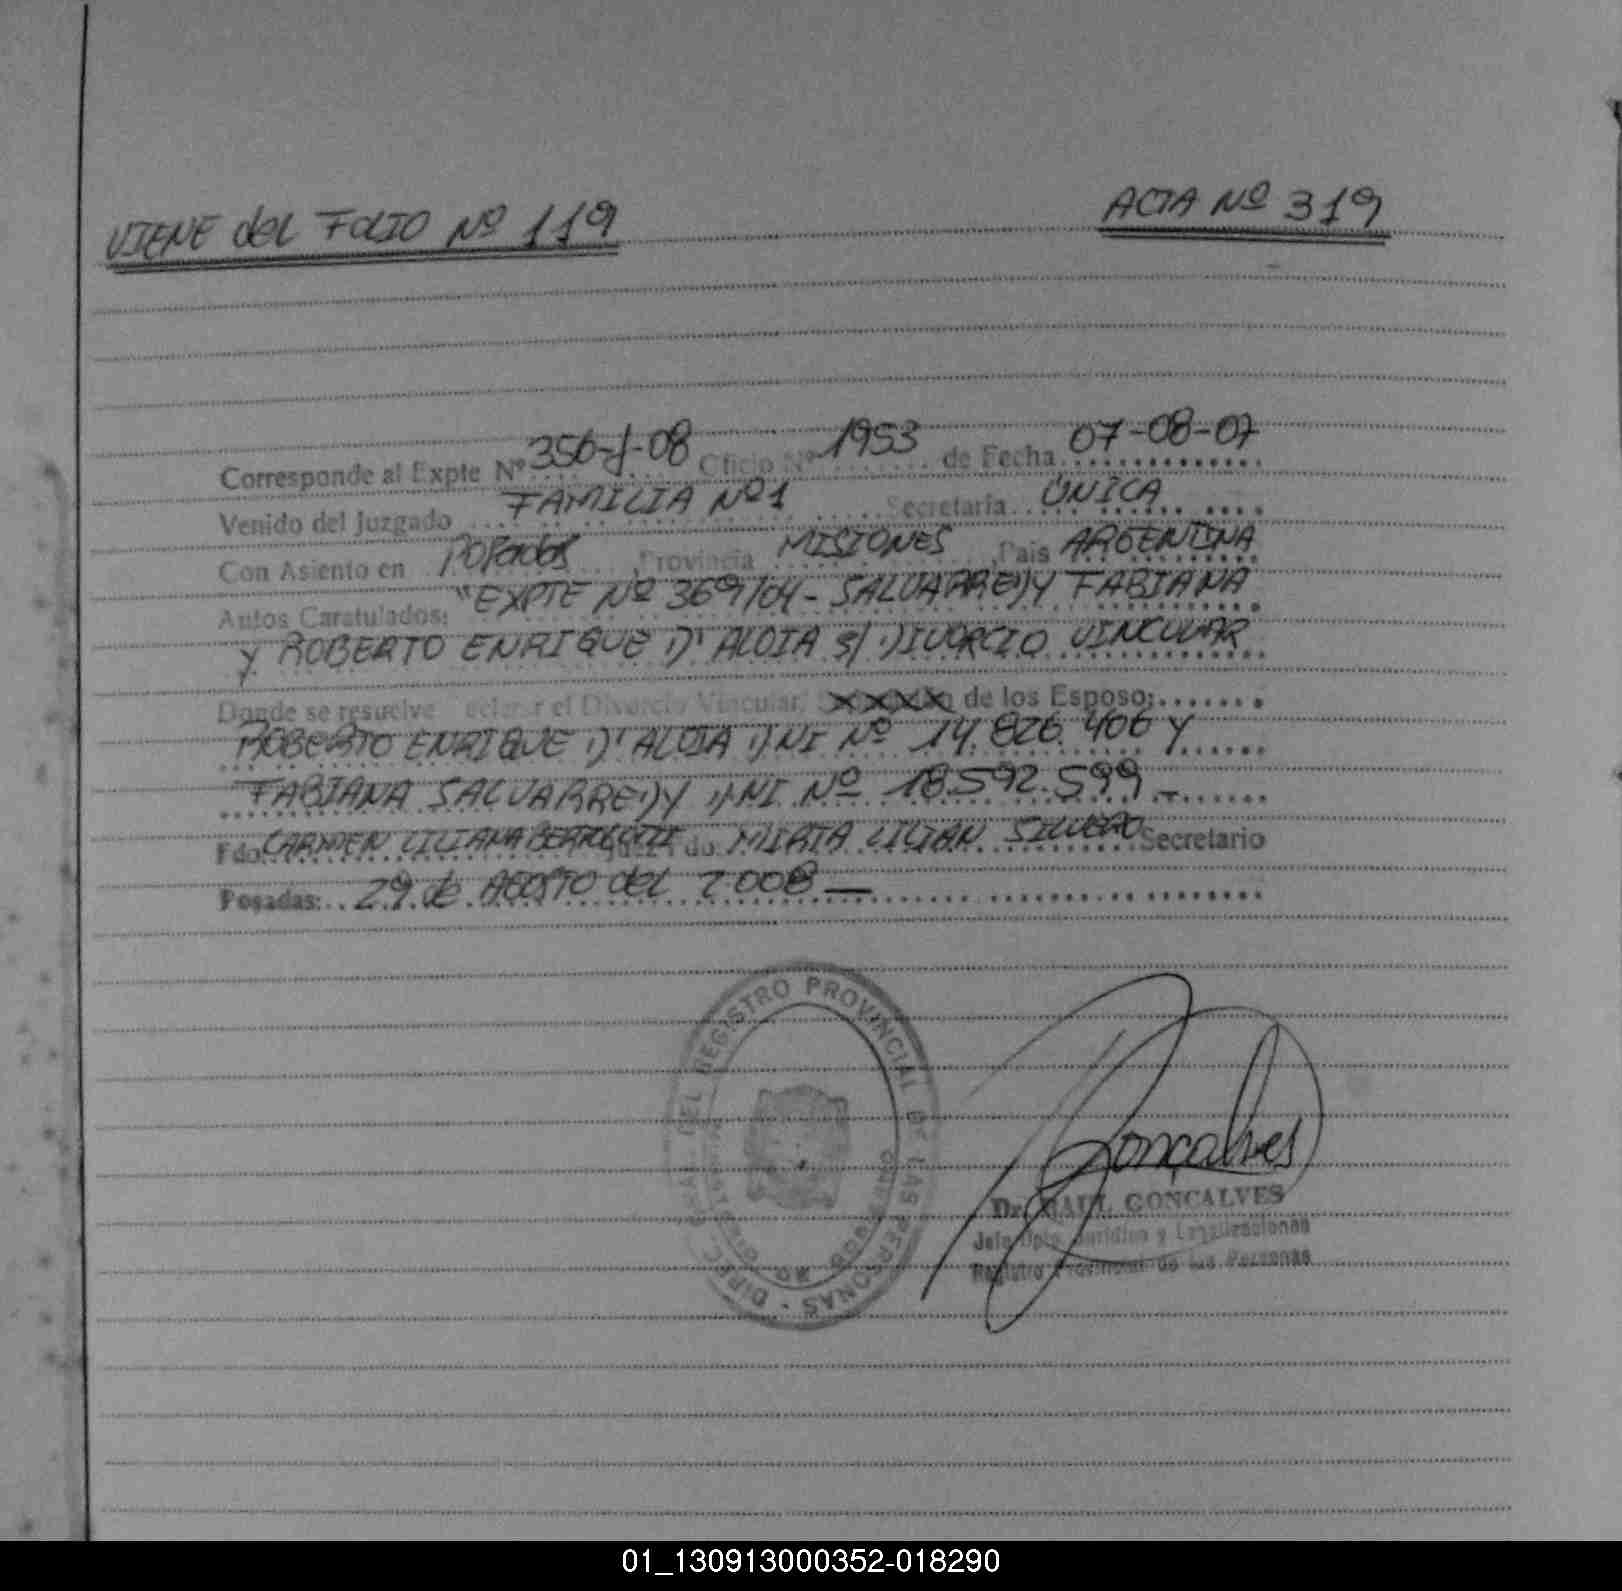 VIENE del FOLIO Nº 119 ACTA Nº 319
Corresponde al Expte Nº 356-J-08 Oficio Nº 1953 de Fecha 07-08-07
Venido del Juzgado FAMILIA Nº1 Secretaria UNICA
Con Asiento en Posadas Provincia MISIONES Pais ARGENTINA
Autos Caratulados: "EXPTE Nº 369/04 - SALVARREDY FABIANA
y ROBERTO ENRIQUE D'ALOIA S/ DIVORCIO VINCULAR
Donde se resuelve eclarar el Divorcio Vincular, de los Esposo:
ROBERTO ENRIQUE D'ALOIA DNI Nº 14.826.406 Y
FABIANA SALVARREDY DNI Nº 18.592.599 -
Fdo CARMEN LILIANA Fdo MIRTA LILIAN SILVERO Secretario
Posadas: 29 de AGOSTO del 2008 —
REGISTRO PROVINCIAL DE LAS PERSONAS
Gonçalves
Dr. RAUL GONCALVES
Jefe Dpto. Juridico y Legalizaciones
Registro Provincial de las Personas
01_130913000352-018290